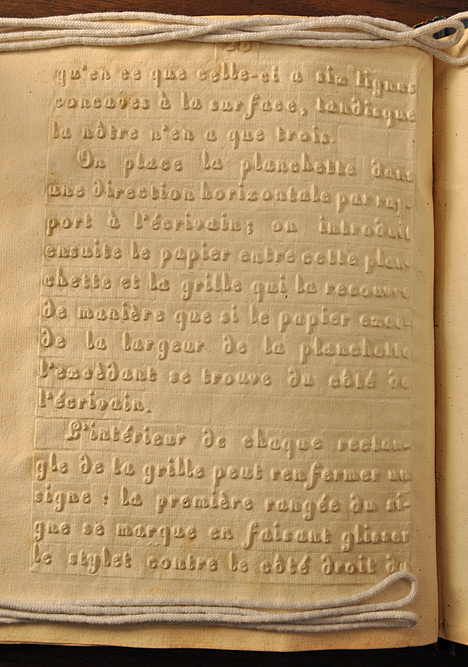 qu'en ce que celle-ci a six lignes
concaves à la surface, tandisque
la nôtre n'en a que trois.
On place la planchette dans
une direction horizontale par rap-
port à l'écrivain; on introduit
ensuite le papier entre cette plan-
chette et la grille qui la recouvre
de manière que si le papier excè-
de la largeur de la planchette
l'excédant se trouve du côté de
l'écrivain.
L'intérieur de chaque rectan-
gle de la grille peut renfermer un
signe : la première rangée du si-
gne se marque en faisant glisser
le stylet contre le côté droit du